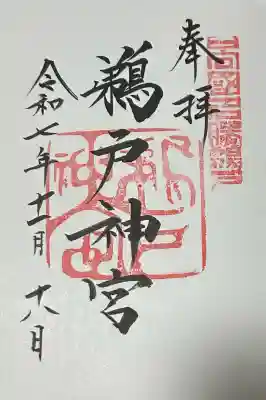 奉拝
鵜戸神宮
令和七年十一月十八日
鵜戸神宮